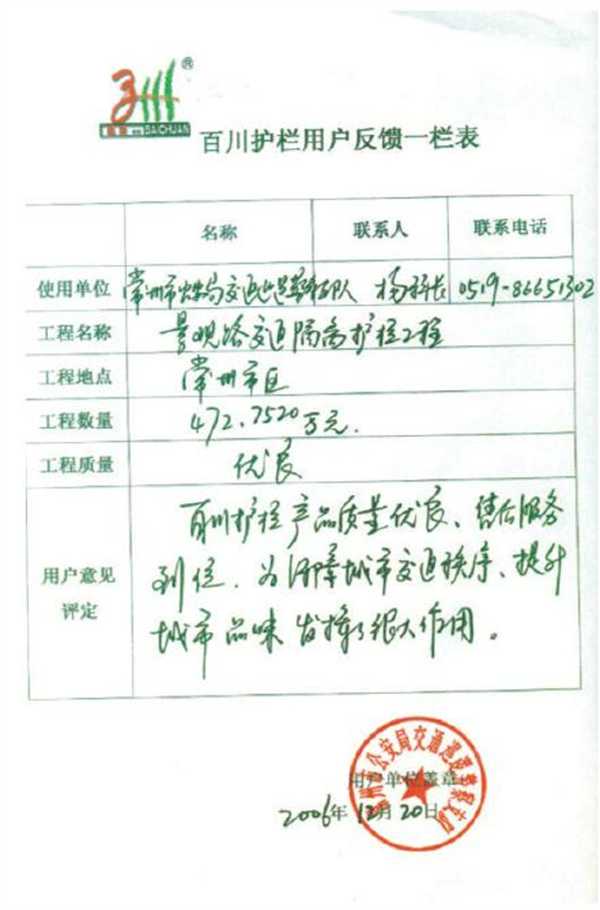 ®
BAICHUAN
百川护栏用户反馈一栏表
名称 联系人 联系电话
使用单位 常州市公安局交通巡逻警察支队 杨科长 0519-86651302
工程名称 景观路交通隔离护栏工程
工程地点 常州市区
工程数量 472.7520万元.
工程质量 优良
用户意见
评定
百川护栏产品质量优良、售后服务
到位.为保障城市交通秩序、提升
城市品味发挥了很大作用。
常州市公安局交通巡逻警察支队
用户单位盖章
2006年12月20日